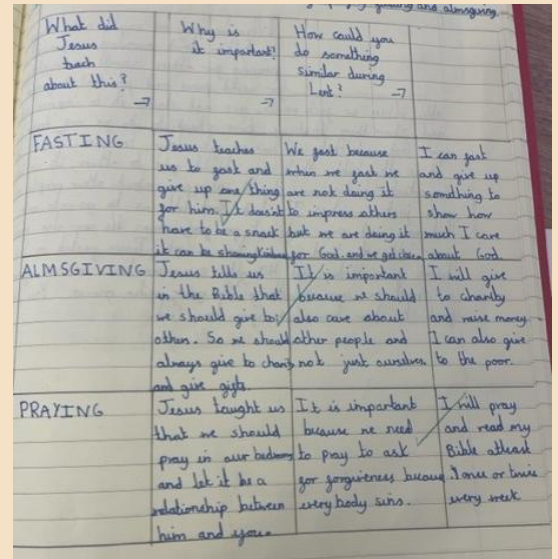 praying, fasting and almsgiving.
What did
Jesus
teach
about this?
Why is
it important?
How could you
do something
similar during
Lent?
FASTING
Jesus teaches
us to fast and
give up one thing
for him. It doesn't
have to be a snack
it can be sharing
We fast because
when we fast we
are not doing it
to impress others
but we are doing it
for God. and we get closer
I can fast
and give up
something to
show how
much I care
about God.
ALMSGIVING
Jesus tells us
in the Bible that
we should give to
others. So we should
always give to charity
and give gifts
It is important
because we should
also care about
other people and
not just ourselves.
I will give
to charity
and raise money
I can also give
to the poor.
PRAYING
Jesus taught us
that we should
pray in our bedroom
and let it be a
relationship between
him and you.
It is important
because we need
to pray to ask
for forgiveness because
everybody sins.
I will pray
and read my
Bible atleast
once or twice
every week